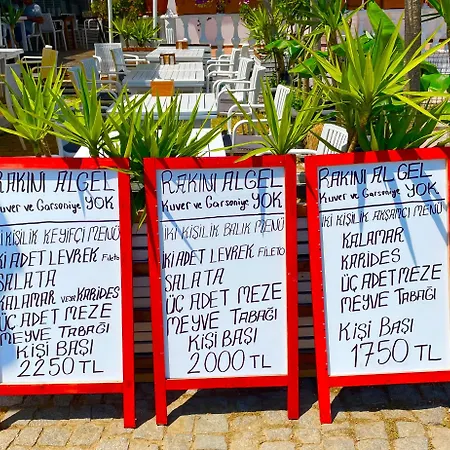 RAKINI AL GEL
Kuver ve Garsoniye YOK
İKİ KİŞİLİK KEYİFÇİ MENÜ
İKİ ADET LEVREK Fileto
SALATA
KALAMAR veya KARİDES
ÜÇ ADET MEZE
MEYVE TABAĞI
KİŞİ BAŞI
2250 TL
RAKINI AL GEL
Kuver ve Garsoniye YOK
İKİ KİŞİLİK BALIK MENÜ
İKİ ADET LEVREK Fileto
SALATA
ÜÇ ADET MEZE
MEYVE TABAĞI
KİŞİ BAŞI
2000 TL
RAKINI AL GEL
Kuver ve Garsoniye YOK
İKİ KİŞİLİK AKŞAMCI MENÜ
KALAMAR
KARİDES
ÜÇ ADET MEZE
MEYVE TABAĞI
KİŞİ BAŞI
1750 TL